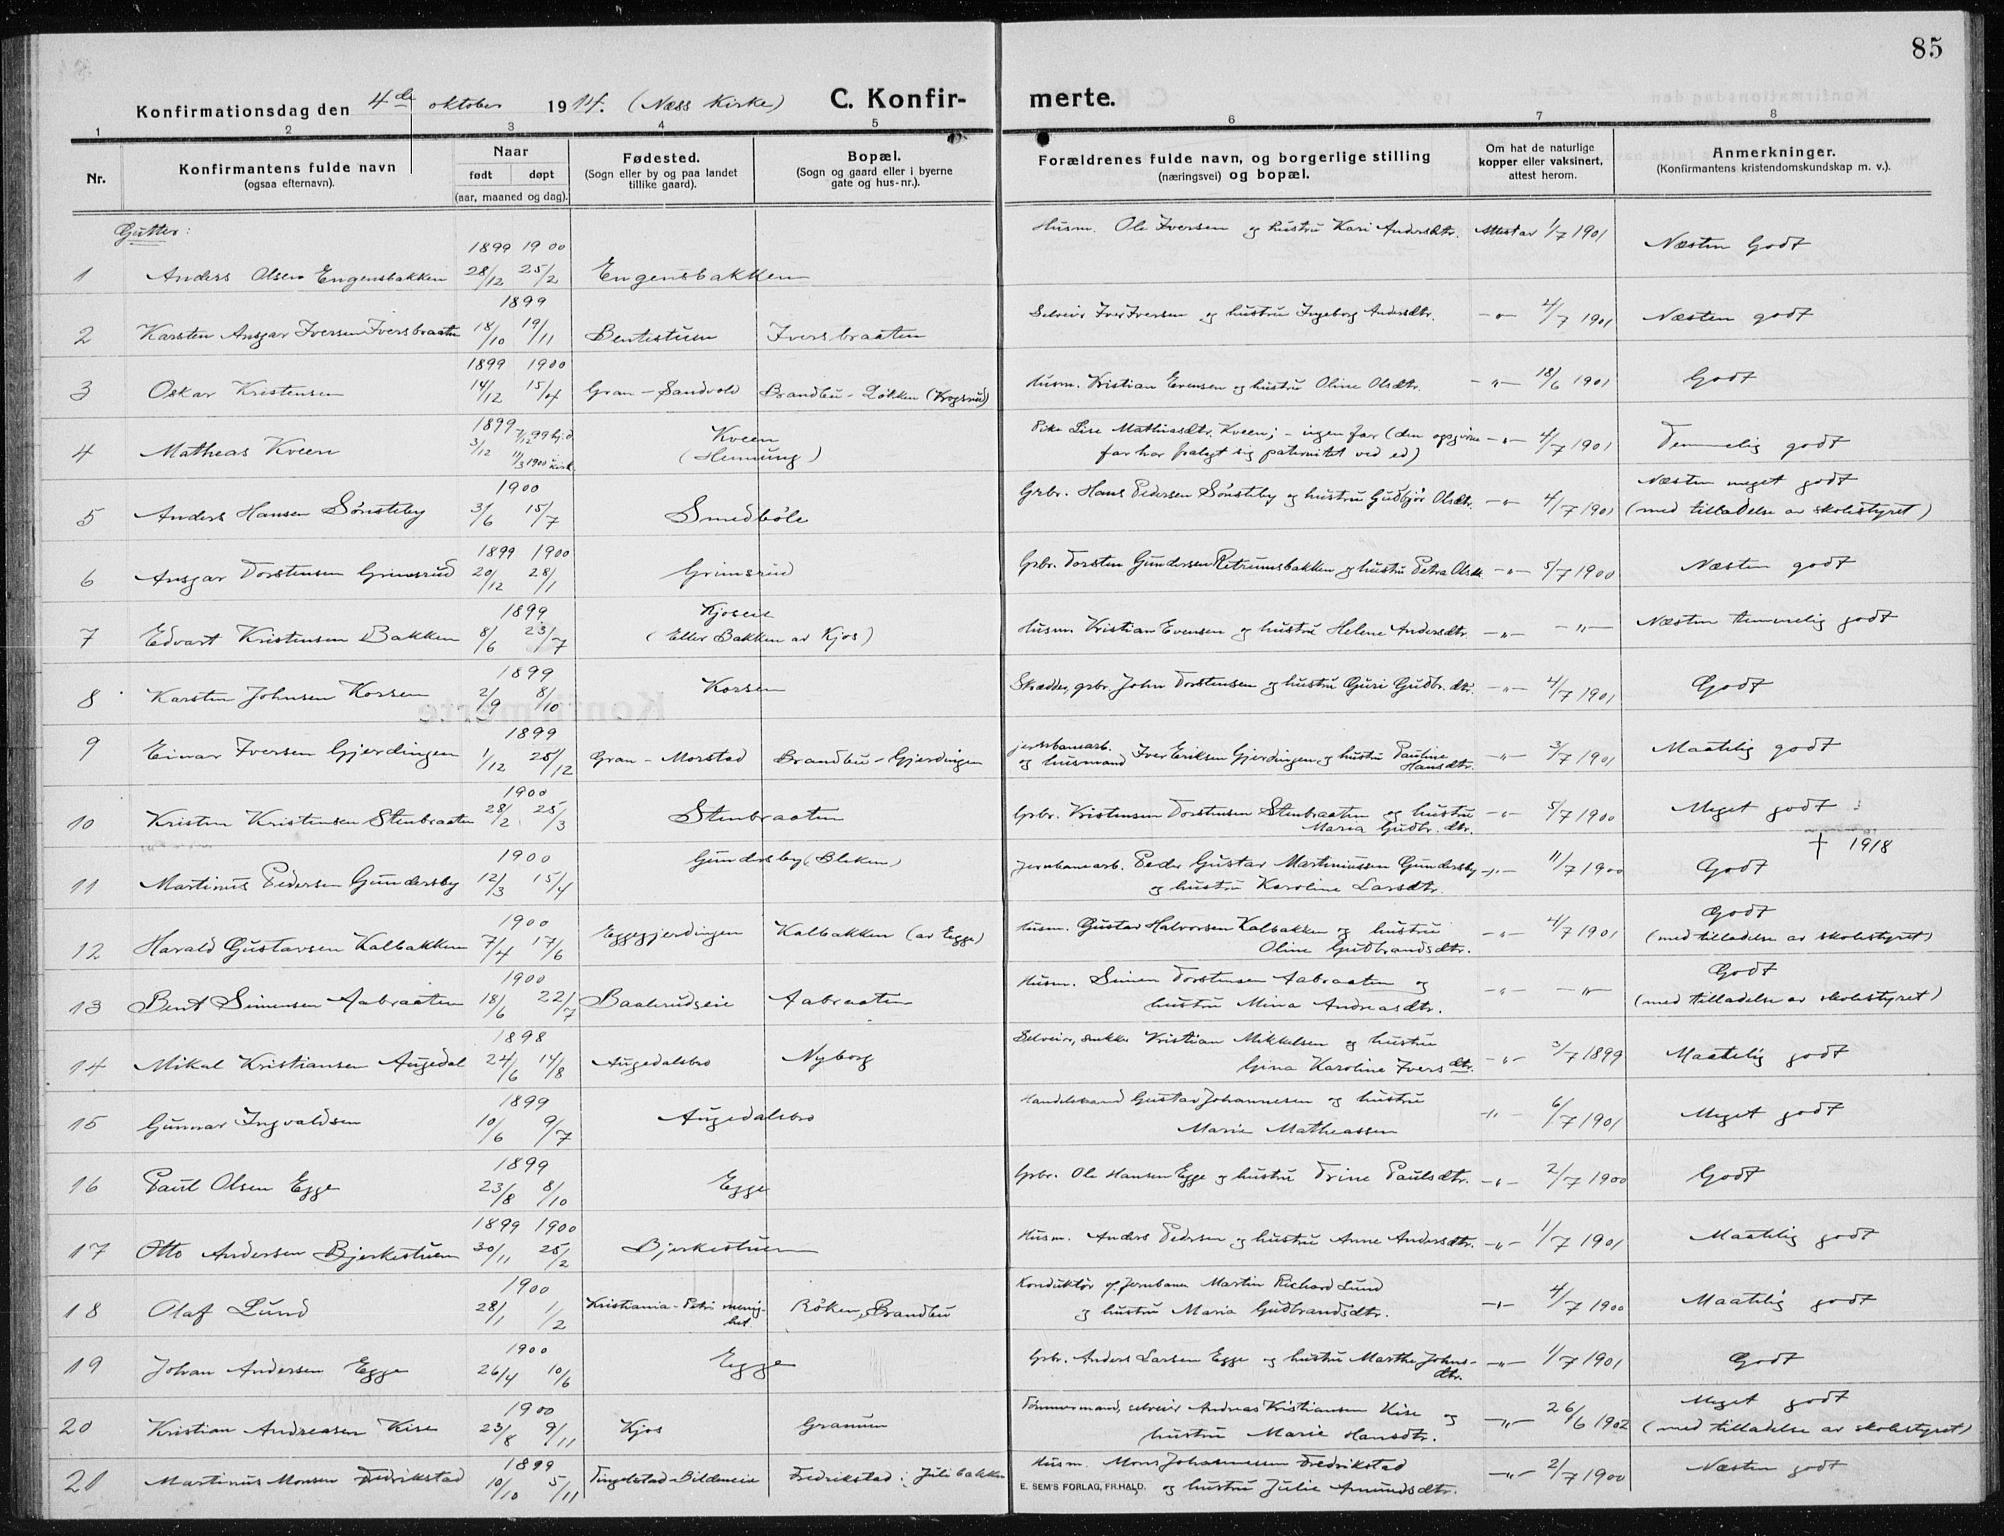 85
Konfirmationsdag den 4de oktober 1914. (Næss Kirke) C. Konfirmerte.
1 2 3 4 5 6 7 8
Nr. Konfirmantens fulde navn (ogsaa efternavn). Naar født døpt (aar, maaned og dag). Fødested. (Sogn eller by og paa landet tillike gaard). Bopæl. (Sogn og gaard eller i byerne gate og hus-nr.). Forældrenes fulde navn, og borgerlige stilling (næringsvei) og bopæl. Om hat de naturlige kopper eller vaksinert, attest herom. Anmerkninger. (Konfirmantens kristendomskundskap m. v.).
Gutter:
1 Anders Olsen Engensbakken 1899 28/12 1900 25/2 Engensbakken Husm. Ole Iversen og hustru Kari Andersdtr. Attest av 1/7 1901 Næsten Godt
2 Karsten Ansgar Iversen Iversbraaten 1899 18/10 19/11 Bentestuen Iversbraaten Selveier Iver Iversen og hustru Ingeborg Andersdtr. -"- 4/7 1901 Næsten godt
3 Oskar Kristensen 1899 14/12 1900 15/4 Gran - Sandvold Brandbu - Løkken (Krogsrud) Husm. Kristian Evensen og hustru Oline Olsdtr. -"- 18/6 1901 Godt
4 Matheas Kveen 1899 3/12 7/12 99 hj.d. 11/3 1900 kirk. Kveen (Hennung) Pike Lise Mathiasdtr. Kveen; - ingen far (den opgivne far har fralagt sig paternitet ved ed) -"- 4/7 1901 Temmelig godt
5 Anders Hansen Sønsteby 1900 3/6 15/7 Smedbøle Grbr. Hans Pedersen Sønsteby og hustru Gudbjør Olsdtr. -"- 4/7 1901 Næsten meget godt (med tilladelse av skolestyret)
6 Ansgar Torstensen Grimsrud 1899 20/12 1900 28/1 Grimsrud Grbr. Torsten Gundersen Retrumsbakken og hustru Petra Olsdtr. -"- 5/7 1900 Næsten godt
7 Edvart Kristensen Bakken 1899 8/6 23/7 Kjoseie (Eller Bakken av Kjos) Husm. Kristian Evensen og hustru Helene Andersdtr. -"- -"- Næsten temmelig godt
8 Karsten Johnsen Korsen 1899 2/9 8/10 Korsen Skrædder, grbr. John Torstensen og hustru Guri Gudbr.dtr. -"- 4/7 1901 Godt
9 Einar Iversen Gjerdingen 1899 1/12 25/12 Gran - Morstad Brandbu - Gjerdingen jernbanearb. og husmand Iver Eriksen Gjerdingen og hustru Pauline Hansdtr. -"- 3/7 1901 Maatelig godt
10 Kristen Kristensen Stenbraaten 1900 28/2 25/3 Stenbraaten Grbr. Kristensen Torstensen Stenbraaten og hustru Maria Gudbr.dtr. -"- 5/7 1900 Meget godt
11 Martinus Pedersen Gundersby 1900 12/3 15/4 Gundersby (Bleken) Jernbanearb. Peder Gustav Martiniussen Gundersby og hustru Karoline Larsdtr. -"- 11/7 1900 Godt † 1918
12 Harald Gustavsen Kalbakken 1900 7/4 17/6 Eggegjerdingen Kalbakken (av Egge) Husm. Gustav Halvorsen Kalbakken og hustru Oline Gudbrandsdtr. -"- 4/7 1901 Godt (med tilladelse av skolestyret)
13 Bent Simensen Aabraaten 1900 18/6 22/7 Baalerudseie Aabraaten Husm. Simen Torstensen Aabraaten og hustru Mina Andreasdtr. -"- -"- Godt (med tilladelse av skolestyret)
14 Mikal Kristiansen Augedal 1898 24/6 14/8 Augedalsbro Nyborg Selveier, snekker Kristian Mikkelsen og hustru Gina Karoline Iversdtr. -"- 3/7 1899 Maatelig godt
15 Gunnar Ingvaldsen 1899 10/6 9/7 Augedalsbro Handelsmand Gustav Johannesen og hustru Marie Matheassen -"- 6/7 1901 Meget godt
16 Paul Olsen Egge 1899 23/8 8/10 Egge Grbr. Ole Hansen Egge og hustru Trine Paulsdtr. -"- 2/7 1900 Godt
17 Otto Andersen Bjerkestuen 1899 30/11 1900 25/2 Bjerkestuen Husm. Anders Pedersen og hustru Anne Andersdtr. -"- 1/7 1901 Maatelig godt
18 Olaf Lund 1900 28/1 1/2 Kristiania - Petri menighet Røken, Brandbu Konduktør v/ Jernbanen Martin Richard Lund og hustru Maria Gudbrandsdtr. -"- 4/7 1900 Maatelig godt
19 Johan Andersen Egge 1900 26/4 10/6 Egge Grbr. Anders Larsen Egge og hustru Marthe Johnsdtr. -"- 1/7 1901 Godt
20 Kristian Andreasen Kise 1900 23/8 9/11 Kjos Granum Tømmermand, selveier Andreas Kristiansen Kise og hustru Marie Hansdtr. -"- 26/6 1902 Meget godt (med tilladelse av skolestyret)
21 Martinus Monsen Fredrikstad 1899 10/10 5/11 Tingelstad - Bildeneie Fredrikstad: Julibakken Husm. Mons Johannessen Fredrikstad og hustru Julie Amundsdtr. -"- 2/7 1900 Næsten godt
E. SEM'S FORLAG, FR.HALD.